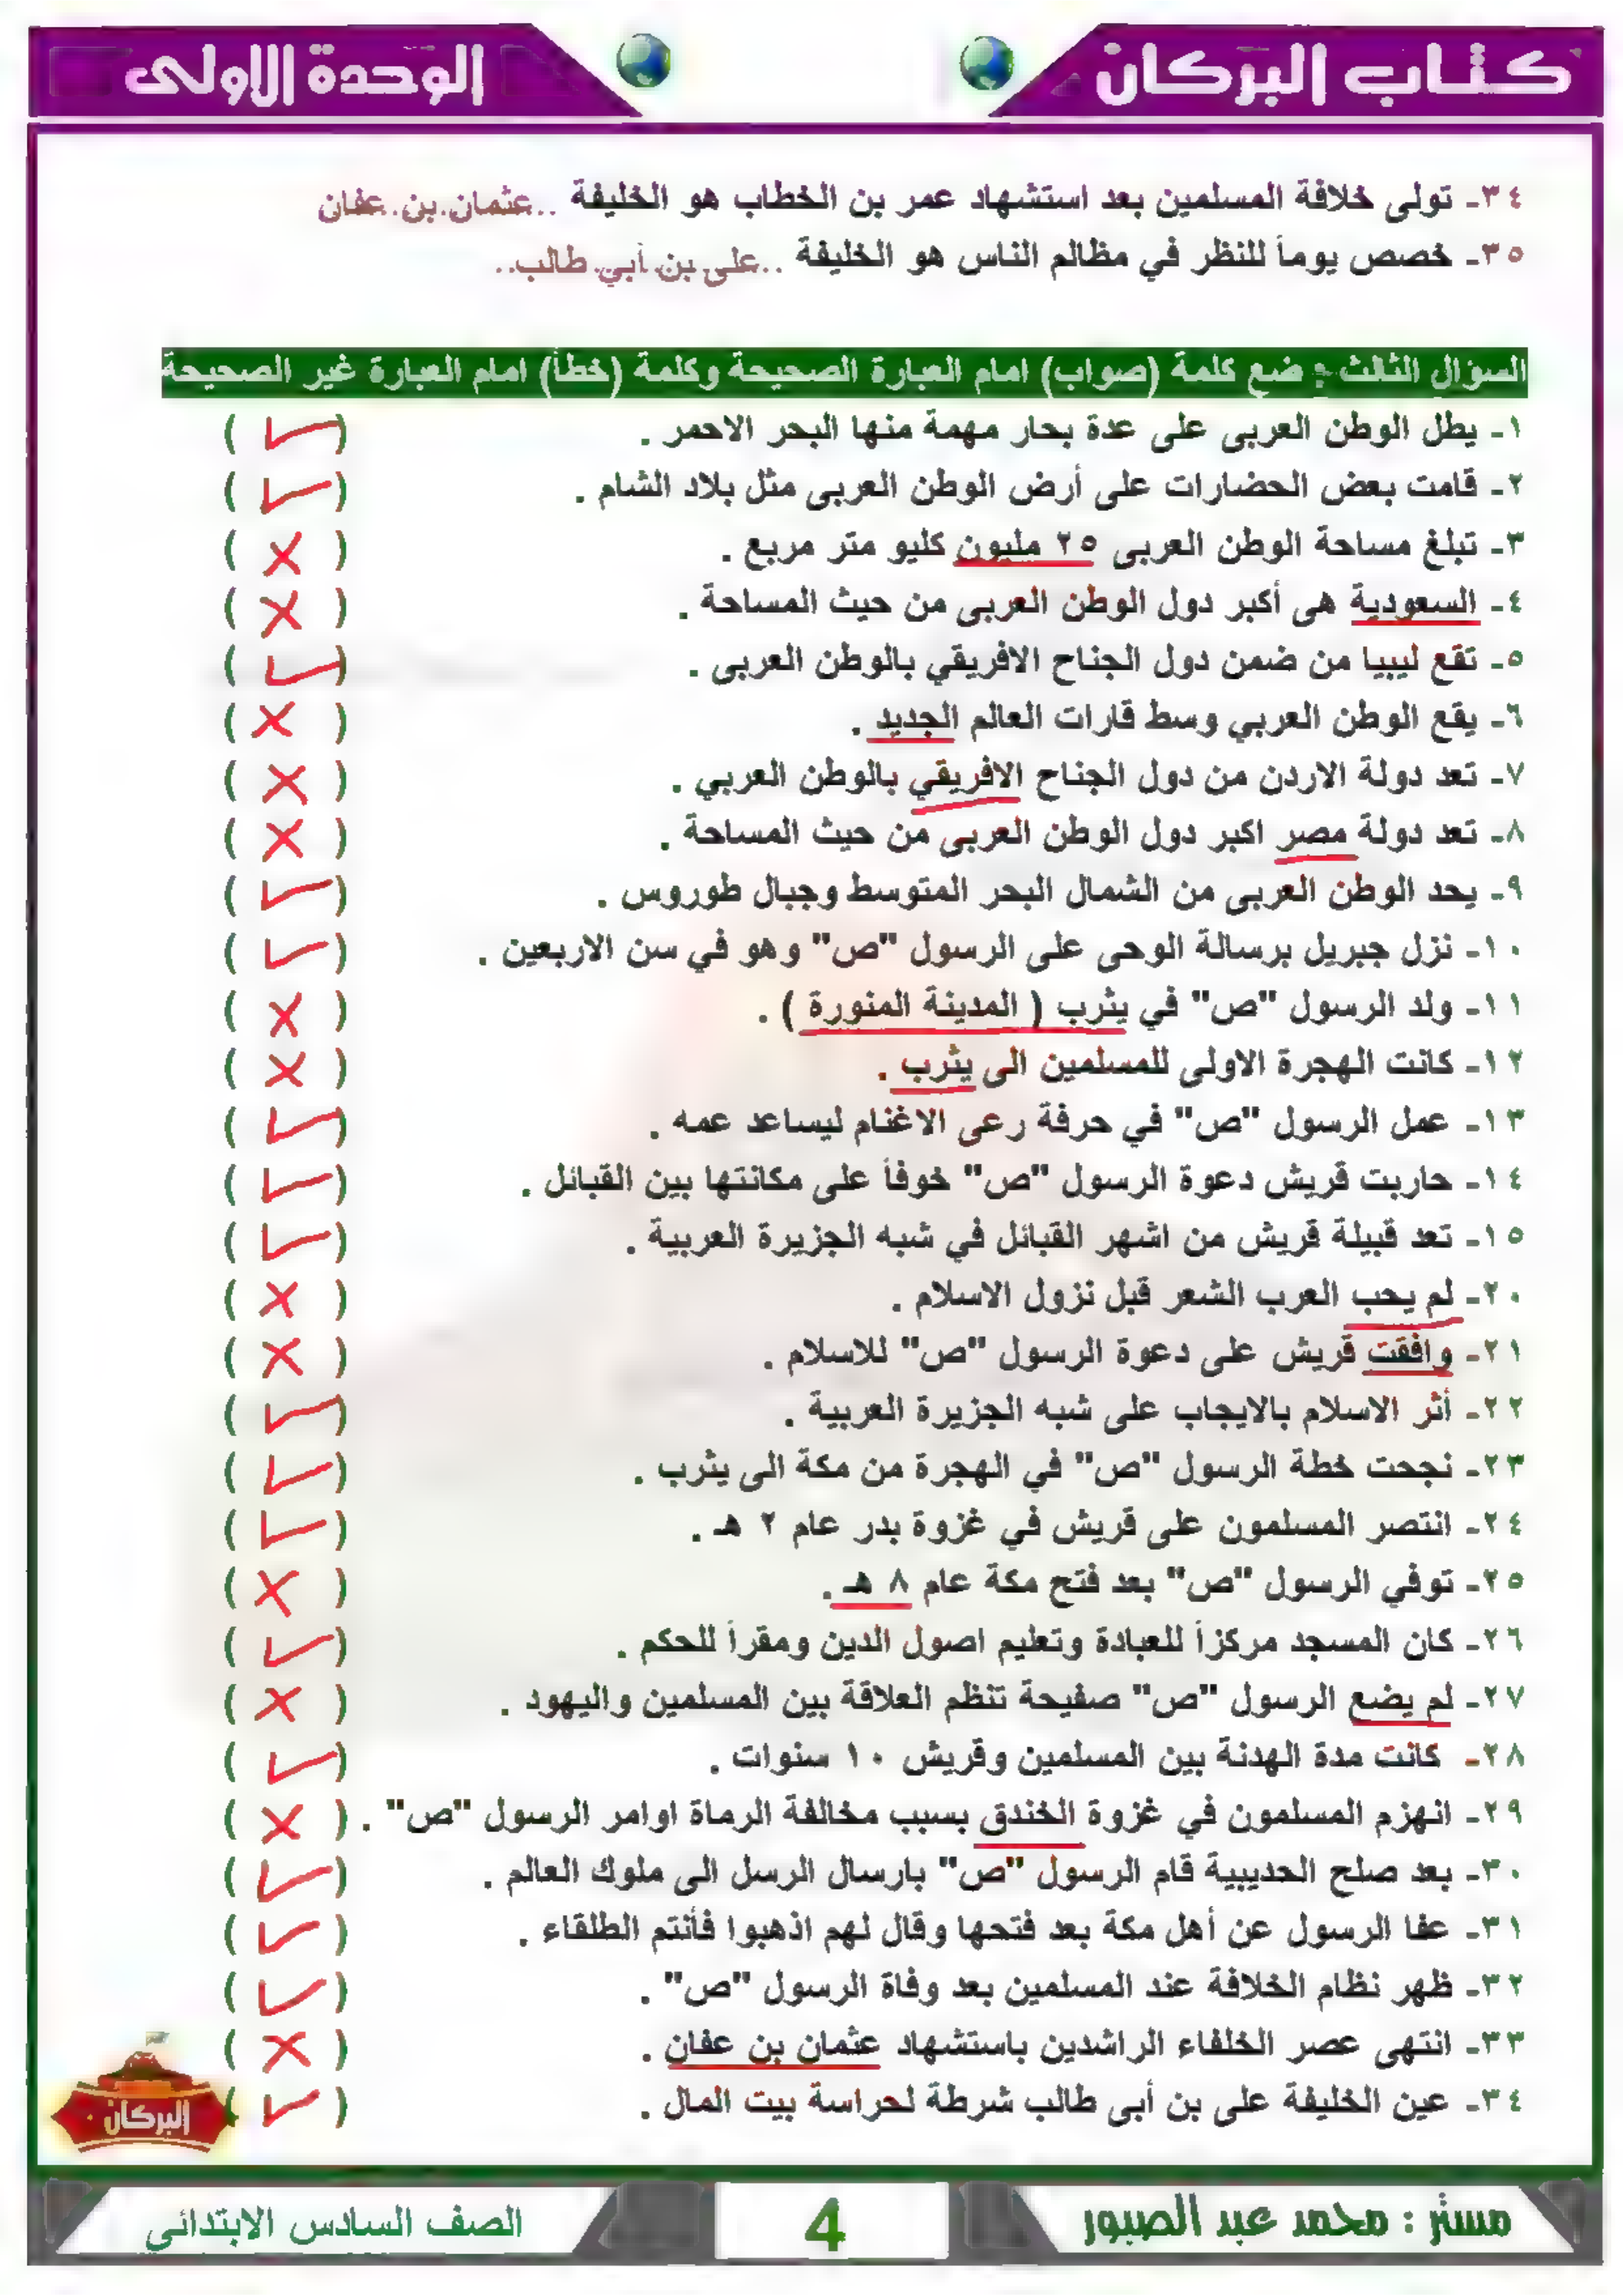 كتاب البركان
الوحدة الاولى
٣٤- تولى خلافة المسلمين بعد استشهاد عمر بن الخطاب هو الخليفة ..عثمان.بن.عفان
٣٥- خصص يوماً للنظر في مظالم الناس هو الخليفة ..على.بن.أبي.طالب..
السؤال الثالث : ضع كلمة (صواب) امام العبارة الصحيحة وكلمة (خطأ) امام العبارة غير الصحيحة
١- يطل الوطن العربى على عدة بحار مهمة منها البحر الاحمر . (✓)
٢- قامت بعض الحضارات على أرض الوطن العربى مثل بلاد الشام . (✓)
٣- تبلغ مساحة الوطن العربى ٢٥ مليون كليو متر مربع . (✗)
٤- السعودية هى أكبر دول الوطن العربى من حيث المساحة . (✗)
٥- تقع ليبيا من ضمن دول الجناح الافريقي بالوطن العربى . (✓)
٦- يقع الوطن العربي وسط قارات العالم الجديد . (✗)
٧- تعد دولة الاردن من دول الجناح الافريقي بالوطن العربي . (✗)
٨- تعد دولة مصر اكبر دول الوطن العربى من حيث المساحة . (✗)
٩- يحد الوطن العربى من الشمال البحر المتوسط وجبال طوروس . (✓)
١٠- نزل جبريل برسالة الوحى على الرسول "ص" وهو في سن الاربعين . (✓)
١١- ولد الرسول "ص" في يثرب ( المدينة المنورة ) . (✗)
١٢- كانت الهجرة الاولى للمسلمين الى يثرب . (✗)
١٣- عمل الرسول "ص" في حرفة رعى الاغنام ليساعد عمه . (✓)
١٤- حاربت قريش دعوة الرسول "ص" خوفاً على مكانتها بين القبائل . (✓)
١٥- تعد قبيلة قريش من اشهر القبائل في شبه الجزيرة العربية . (✓)
٢٠- لم يحب العرب الشعر قبل نزول الاسلام . (✗)
٢١- وافقت قريش على دعوة الرسول "ص" للاسلام . (✗)
٢٢- أثر الاسلام بالايجاب على شبه الجزيرة العربية . (✓)
٢٣- نجحت خطة الرسول "ص" في الهجرة من مكة الى يثرب . (✓)
٢٤- انتصر المسلمون على قريش في غزوة بدر عام ٢ هـ . (✓)
٢٥- توفي الرسول "ص" بعد فتح مكة عام ٨ هـ . (✗)
٢٦- كان المسجد مركزاً للعبادة وتعليم اصول الدين ومقراً للحكم . (✓)
٢٧- لم يضع الرسول "ص" صفيحة تنظم العلاقة بين المسلمين واليهود . (✗)
٢٨- كانت مدة الهدنة بين المسلمين وقريش ١٠ سنوات . (✓)
٢٩- انهزم المسلمون في غزوة الخندق بسبب مخالفة الرماة اوامر الرسول "ص" . (✗)
٣٠- بعد صلح الحديبية قام الرسول "ص" بارسال الرسل الى ملوك العالم . (✓)
٣١- عفا الرسول عن أهل مكة بعد فتحها وقال لهم اذهبوا فأنتم الطلقاء . (✓)
٣٢- ظهر نظام الخلافة عند المسلمين بعد وفاة الرسول "ص" . (✓)
٣٣- انتهى عصر الخلفاء الراشدين باستشهاد عثمان بن عفان . (✗)
٣٤- عين الخليفة على بن أبى طالب شرطة لحراسة بيت المال . (✓)
البركان
مستر : محمد عبد الصبور
4
الصف السادس الابتدائي